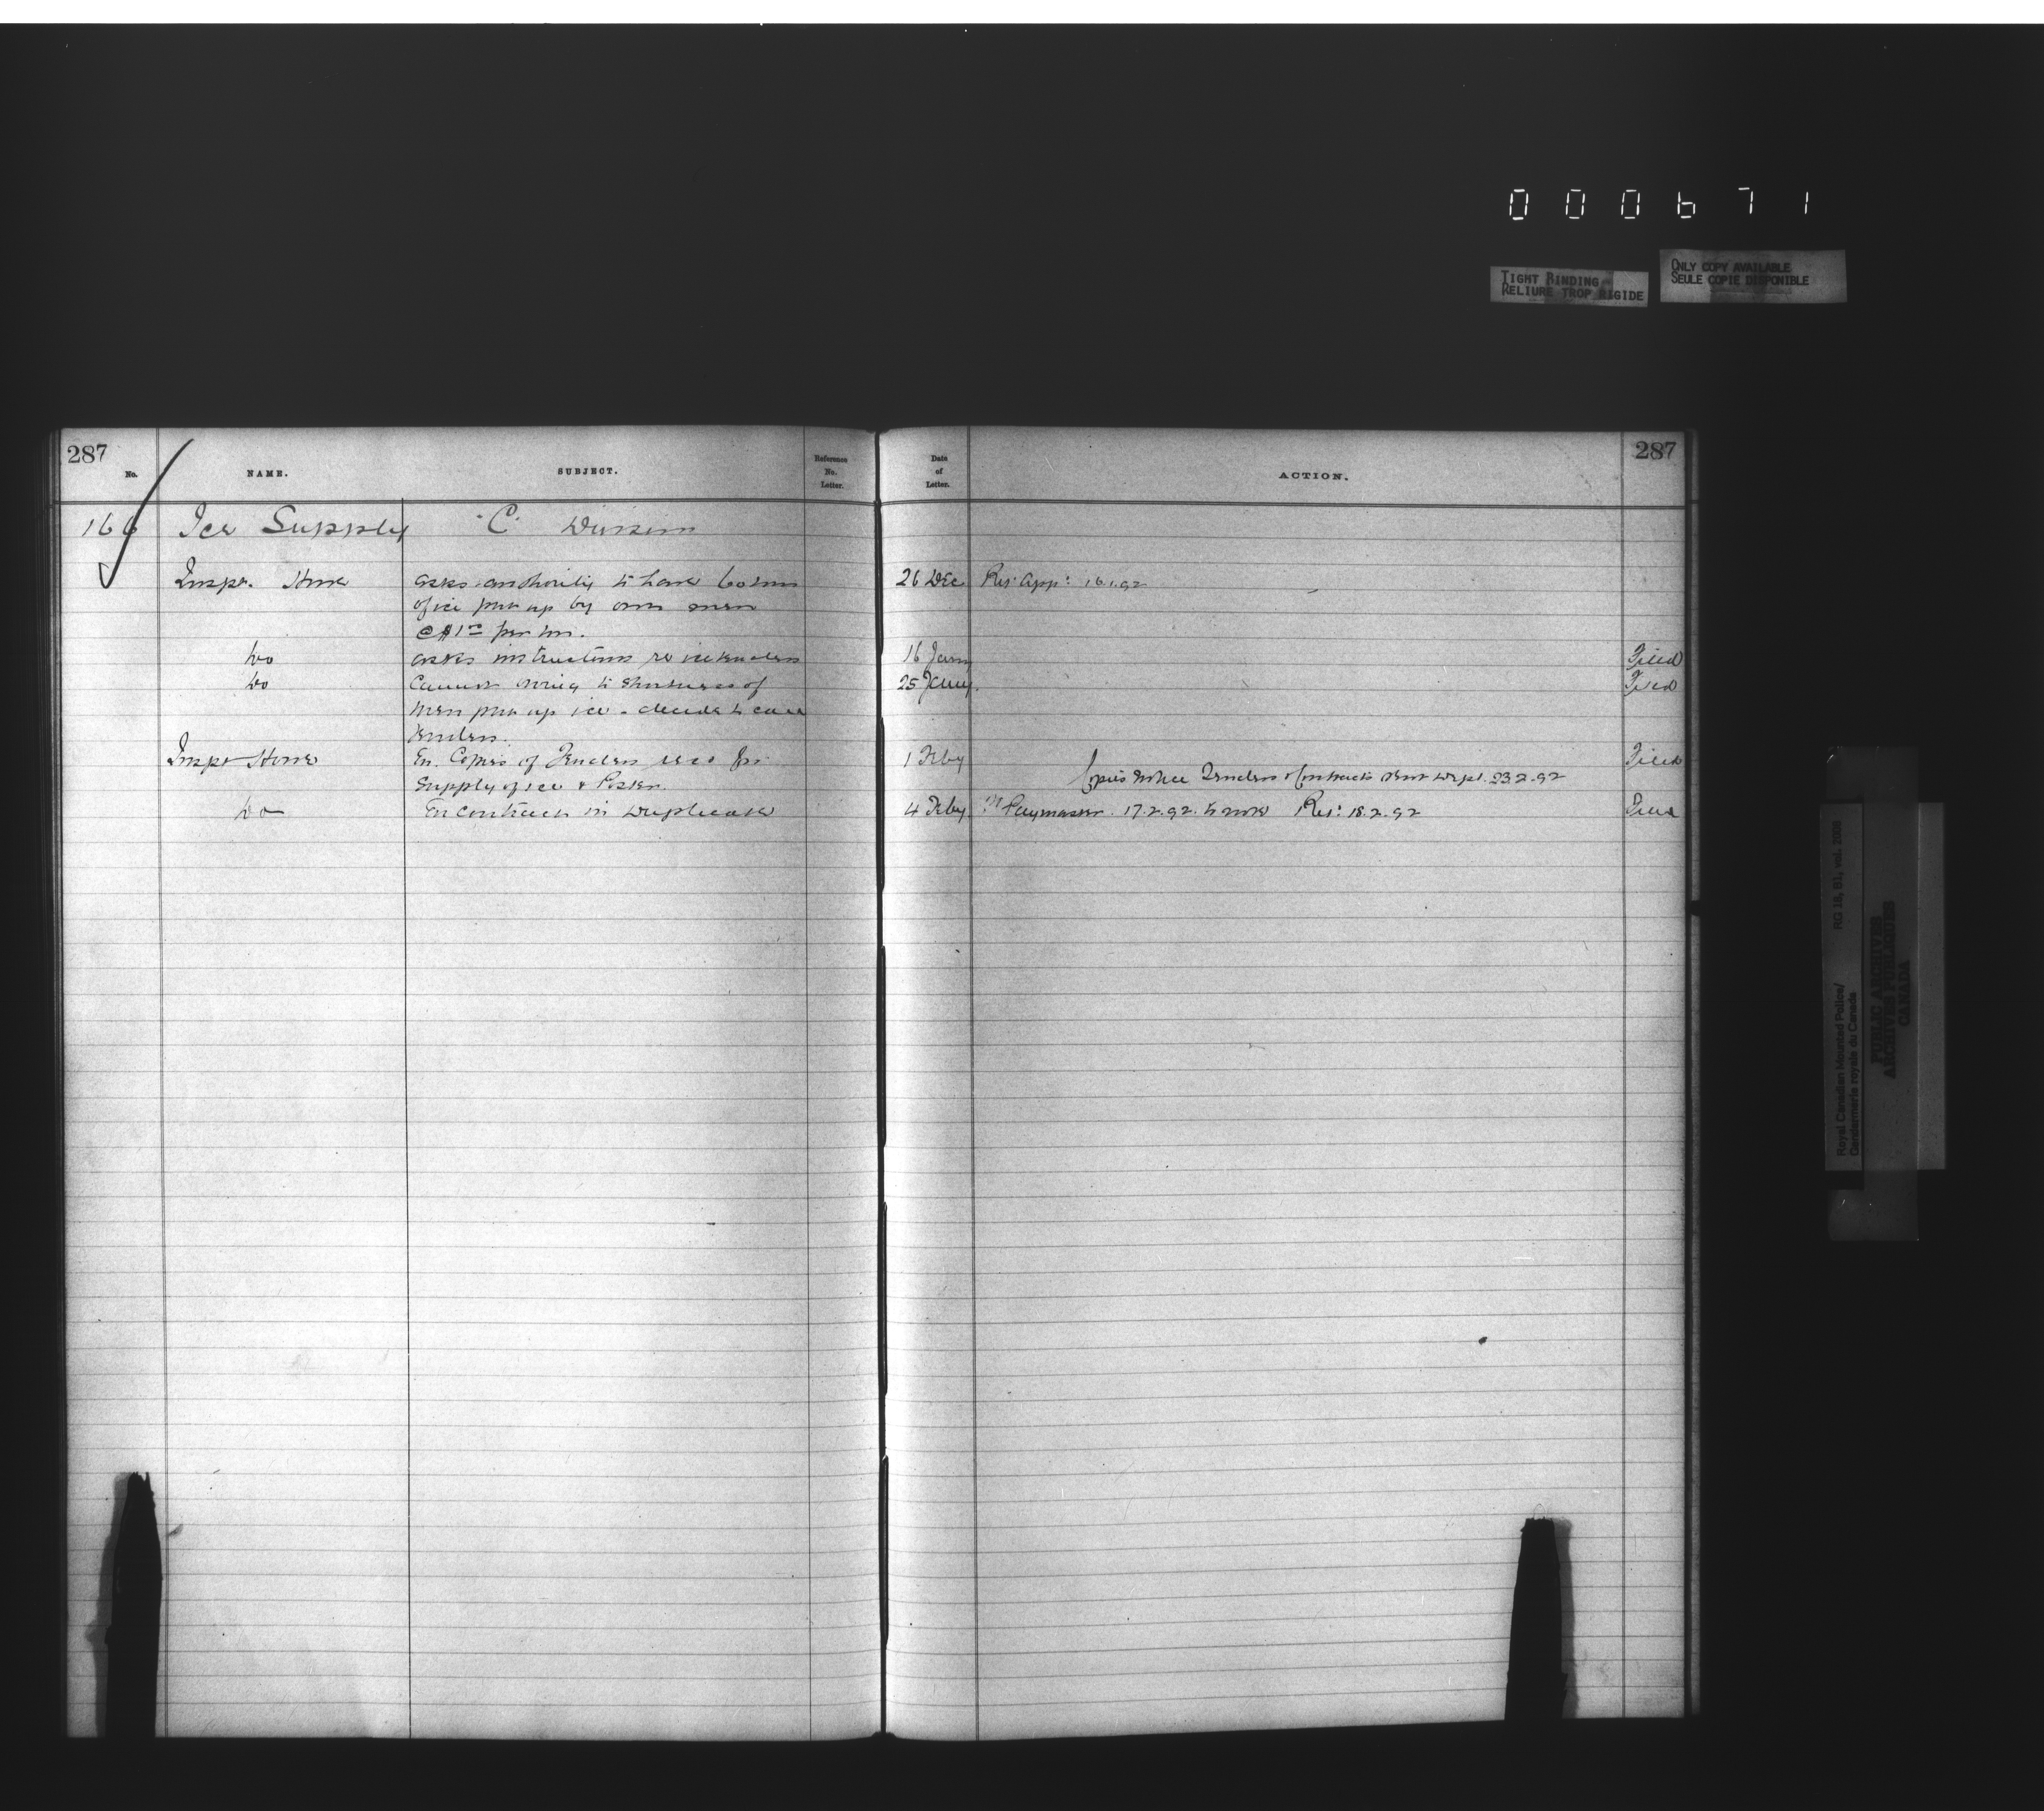 000671
TIGHT BINDING
RELIURE TROP RIGIDE
ONLY COPY AVAILABLE
SEULE COPIE DISPONIBLE
287
No. NAME. SUBJECT. Reference No. Letter.
Date of Letter. ACTION. 287
166 Ice Supply "C" Division
Inspr. Howe asks authority to have 60 tons 26 Dec Rec: App: 16.1.92
of ice put up by own men
@ $1 00 per ton.
Do asks instructions re ice tenders 16 Jany Filed
Do Cannot owing to shortness of 25 Jany. Filed
men put up ice - decide to call
tenders.
Inspr Howe En. Copies of Tenders recd for 1 Feby Filed
Supply of ice & Poster. Copies notice Tenders & Contracts sent Dept. 23.2.92
Do En contract in Duplicate 4 Feby. Paymaster. 17.2.92. to note Rec: 18.2.92 Filed
Royal Canadian Mounted Police/
Gendarmerie royale du Canada
RG 18, B1, vol. 2006
PUBLIC ARCHIVES
ARCHIVES PUBLIQUES
CANADA